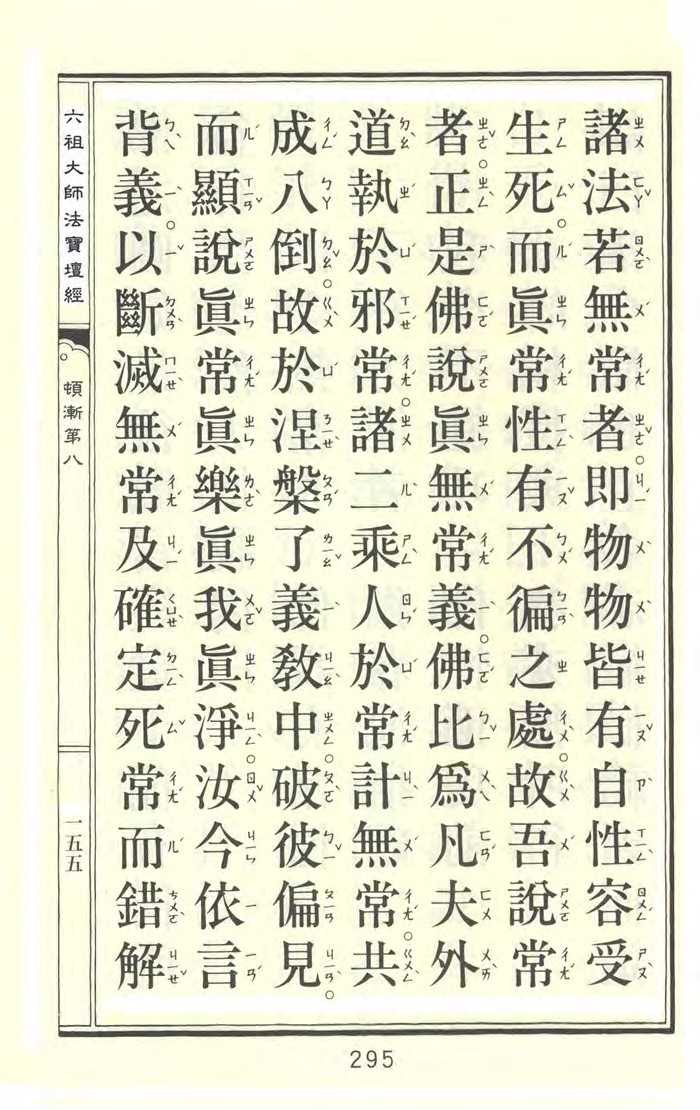 諸法若無常者。即物物皆有自性容受
生死。而眞常性有不徧之處。故吾說常
者。正是佛說眞無常義。佛比爲凡夫外
道執於邪常。諸二乘人於常計無常。共
成八倒。故於涅槃了義敎中。破彼偏見。
而顯說眞常眞樂眞我眞淨。汝今依言
背義。以斷滅無常及確定死常而錯解
六祖大師法寶壇經
頓漸第八
一五五
295